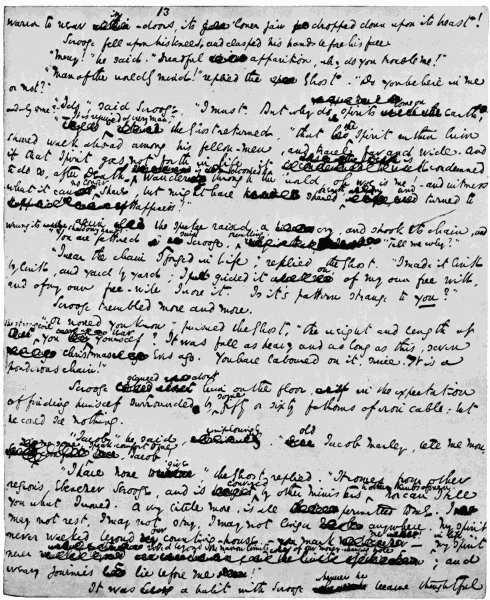 13
warm to wear in-doors, its lower jaw dropped down upon its breast!
Scrooge fell upon his knees, and clasped his hands before his face.
"Mercy!" he said. "Dreadful apparition, why do you trouble me!"
"Man of the worldly mind!" replied the Ghost. "Do you believe in me
or not?"
"I do," said Scrooge. "I must. But why do spirits walk the earth,
and why come
"It is required of every man," the Ghost returned, "that the spirit within him
should walk abroad among his fellow-men, and travel far and wide. And
if that spirit goes not forth in life, it is condemned
to do so, after death. It is doomed to wander through the world, oh woe is me, and witness
what it cannot share, but might have shared, and turned to
happiness!"
the spectre raised a cry, and shook its chain, and
wrung its shadowy hands.
"You are fettered," said Scrooge, trembling. "Tell me why?"
"I wear the chain I forged in life," replied the Ghost. "I made it link
by link, and yard by yard. I girded it on of my own free will,
and of my own free-will I wore it. Is its pattern strange to you?"
Scrooge trembled more and more.
"Or would you know," pursued the Ghost, "the weight and length of
the strong coil you bear yourself? It was full as heavy and as long as this, seven
Christmas Eves ago. You have laboured on it, since. It is a
ponderous chain!"
Scrooge glanced about him on the floor, in the expectation
of finding himself surrounded by some fifty or sixty fathoms of iron cable: but
he could see nothing.
"Jacob," he said, imploringly. "Old Jacob Marley, tell me more.
Jacob."
"I have none to give," the Ghost replied. "It comes from other
regions, Ebenezer Scrooge, and is conveyed by other ministers, to other kinds of men. Nor can I tell
you what I would. A very little more, is all permitted to me. I
may not rest, I may not stay, I may not linger anywhere. My spirit
never walked beyond our counting-house - mark me! - in life my spirit
never roved beyond the narrow limits of our money-changing hole; and
weary journies lie before me!"
It was a habit with Scrooge whenever he became thoughtful